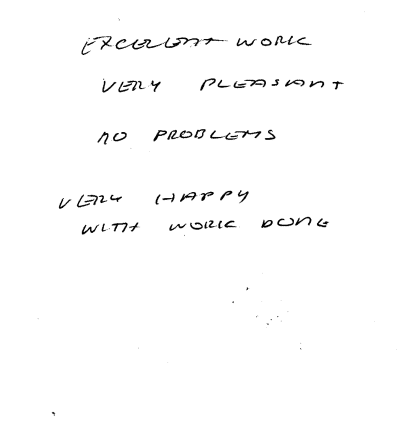 EXCELLENT WORK
VERY PLEASANT
NO PROBLEMS
VERY HAPPY
WITH WORK DONE